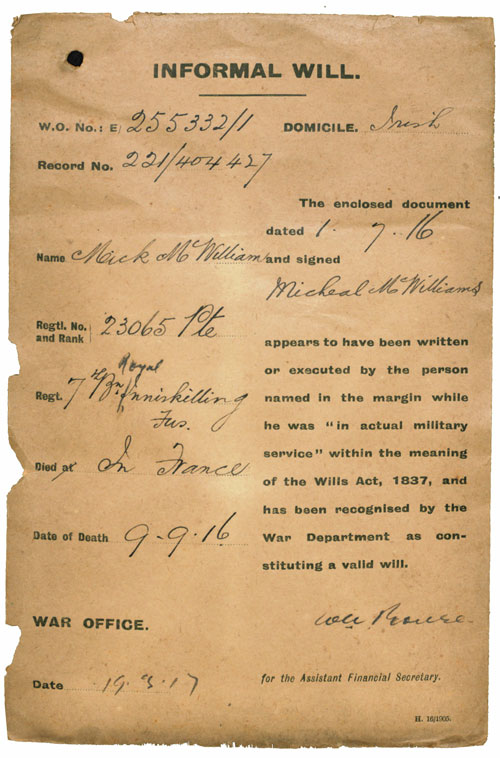 INFORMAL WILL.
W.O. No.: E/ 255332/1
DOMICILE. Irish
Record No. 221/404427
The enclosed document
dated 1. 7. 16
Name Mick McWilliams
and signed
Micheal McWilliams
Regtl. No. and Rank 23065 Pte
appears to have been written
or executed by the person
Regt. 7th Bn Royal Inniskilling
Fus.
named in the margin while
he was "in actual military
service" within the meaning
Died at In France
of the Wills Act, 1837, and
has been recognised by the
Date of Death 9-9-16
War Department as con-
stituting a valid will.
WAR OFFICE.
Date 19.3.17
for the Assistant Financial Secretary.
H. 16/1905.